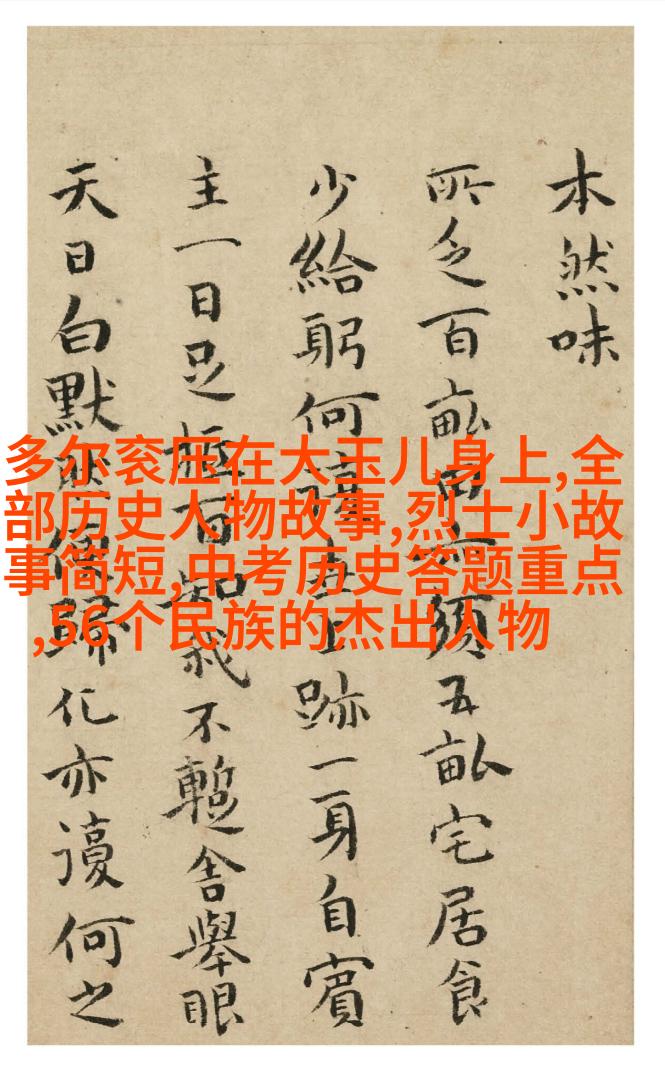 多尔衮压在大玉儿身上,全
部历史人物故事,烈士小故
事简短,中考历史答题重点
,56个民族的杰出人物
本然味
所乏百畝須五畝宅居食
少給躬何跡一身自賓
主一日足百知我不暫舍舉眼
天日白默歸化亦復何之